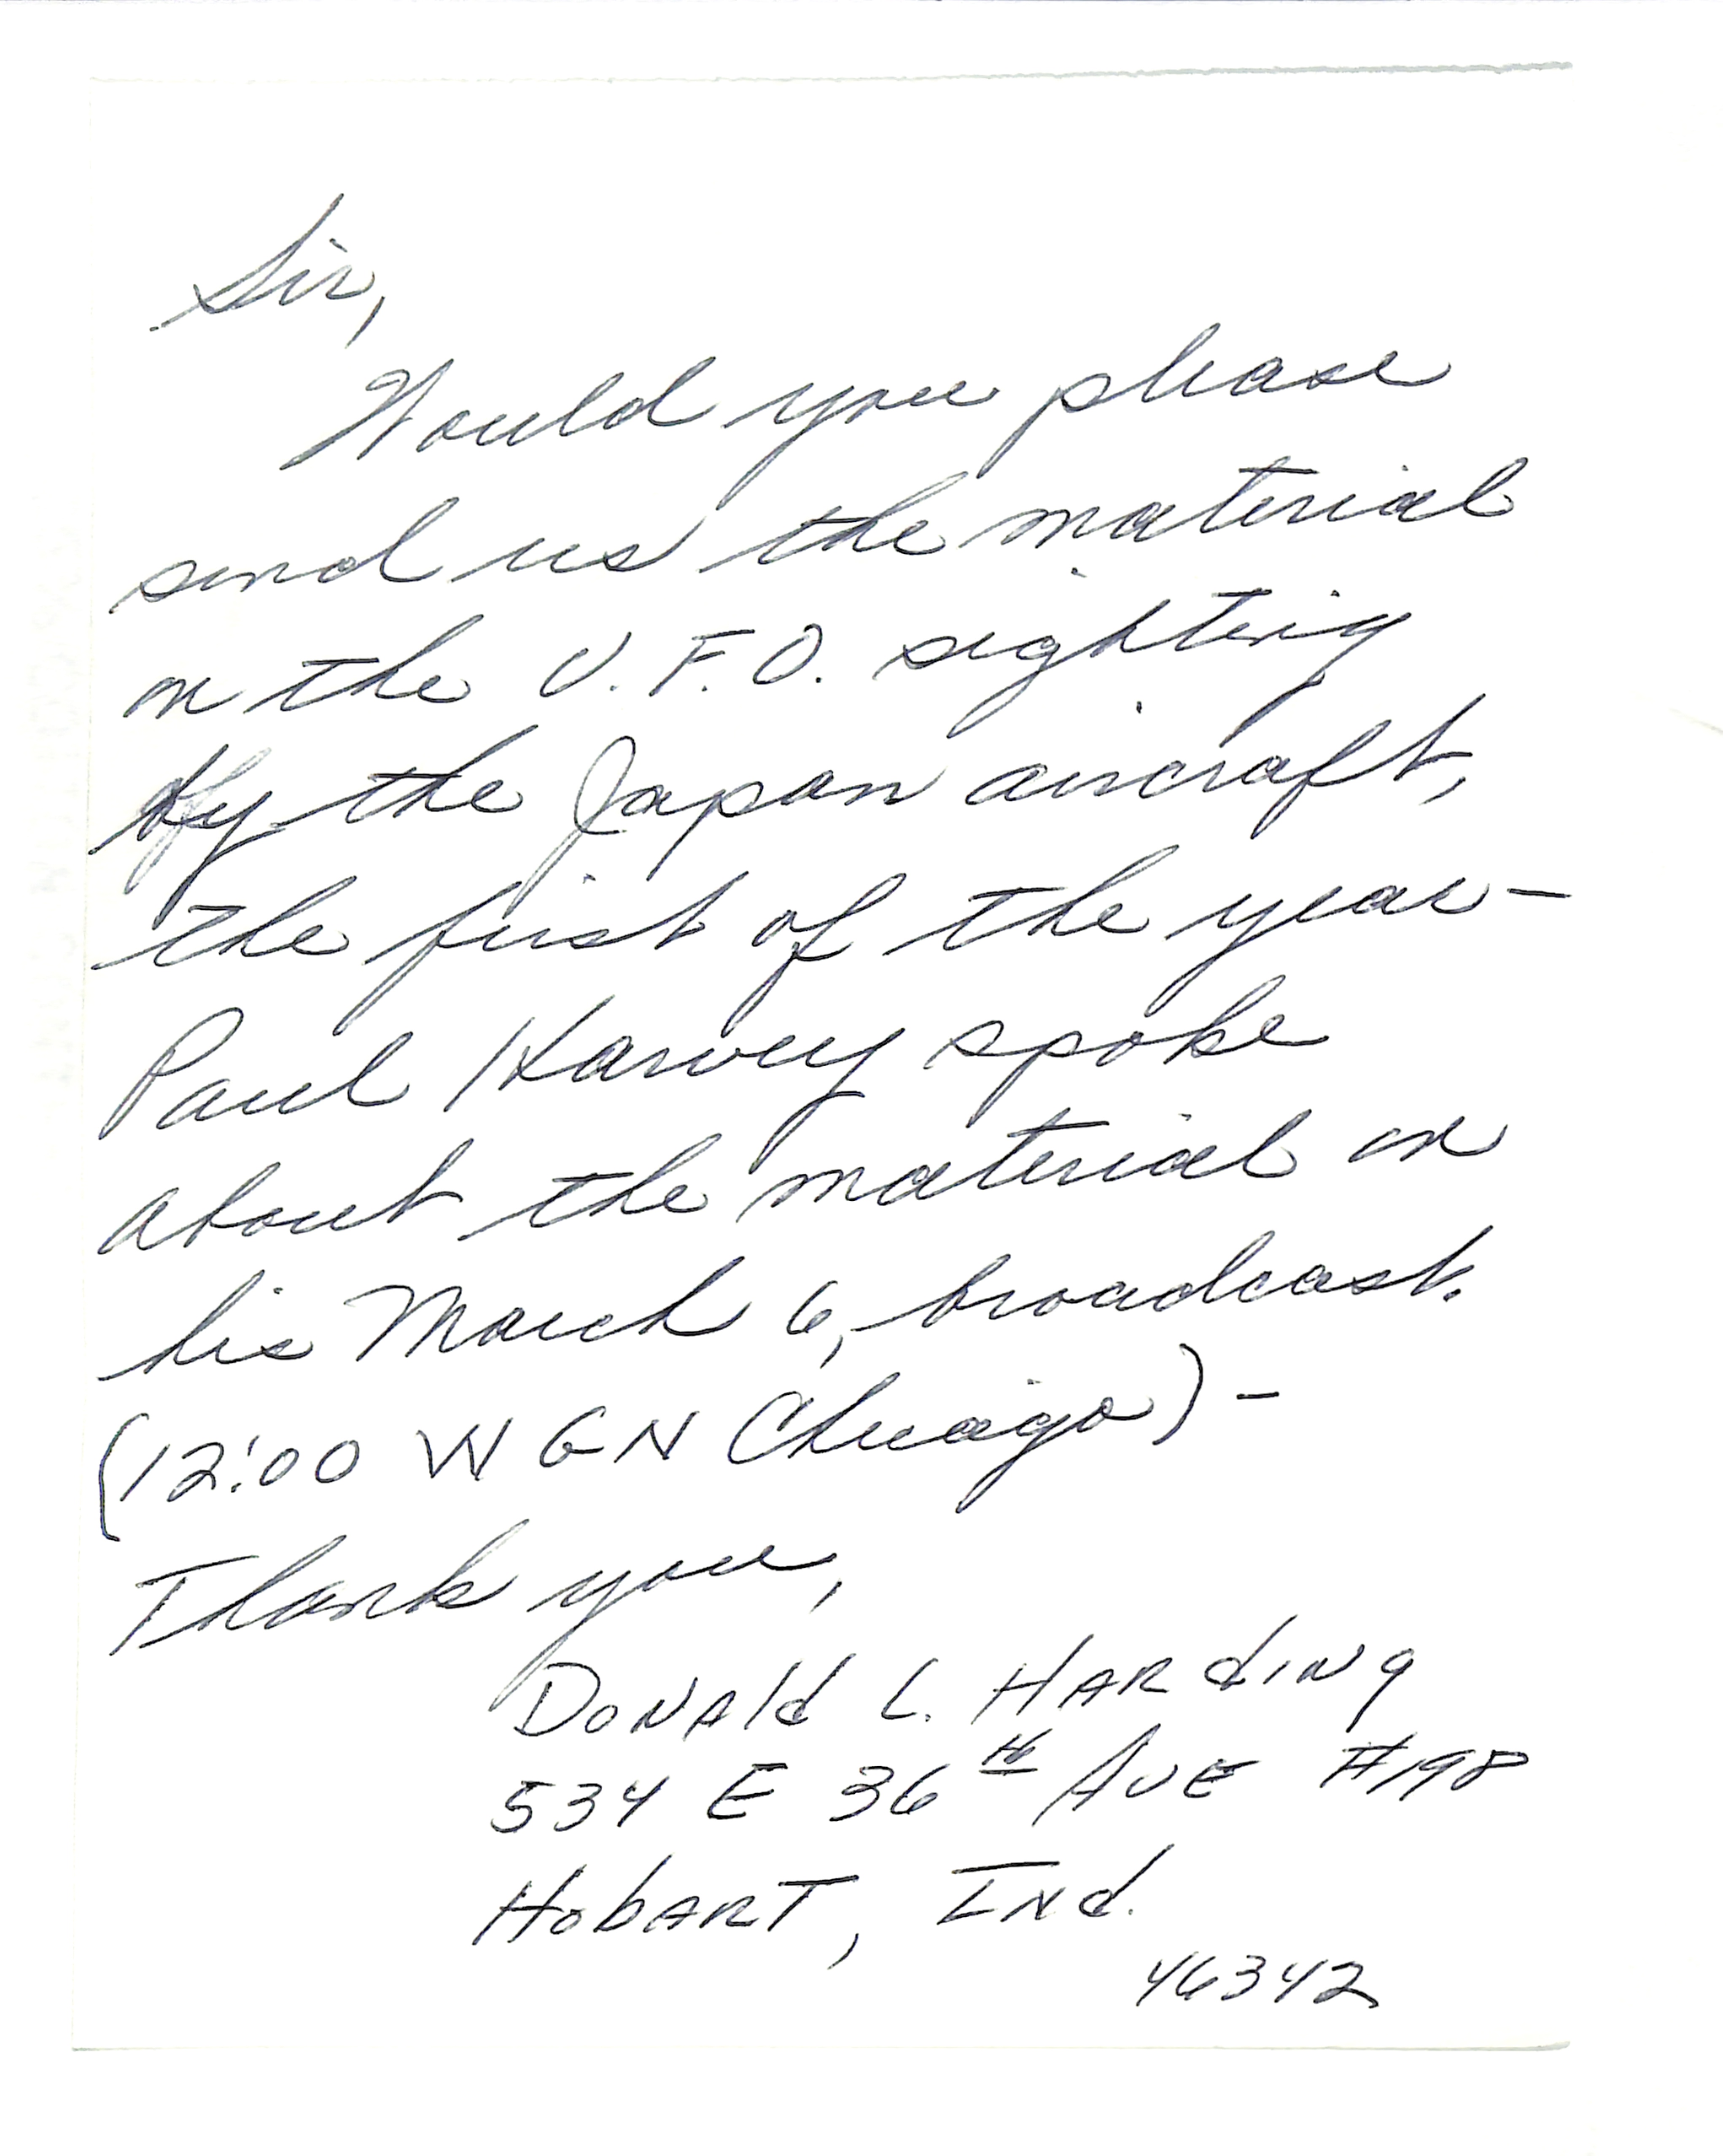 Sir,
Would you please
send us the material
on the U.F.O. sighting
by the Japan aircraft,
the first of the year -
Paul Harvey spoke
about the material on
his March 6, broadcast.
(12:00 WGN Chicago) -
Thank you,
Donald L. Harding
534 E 36th Ave #198
Hobart, Ind.
46342